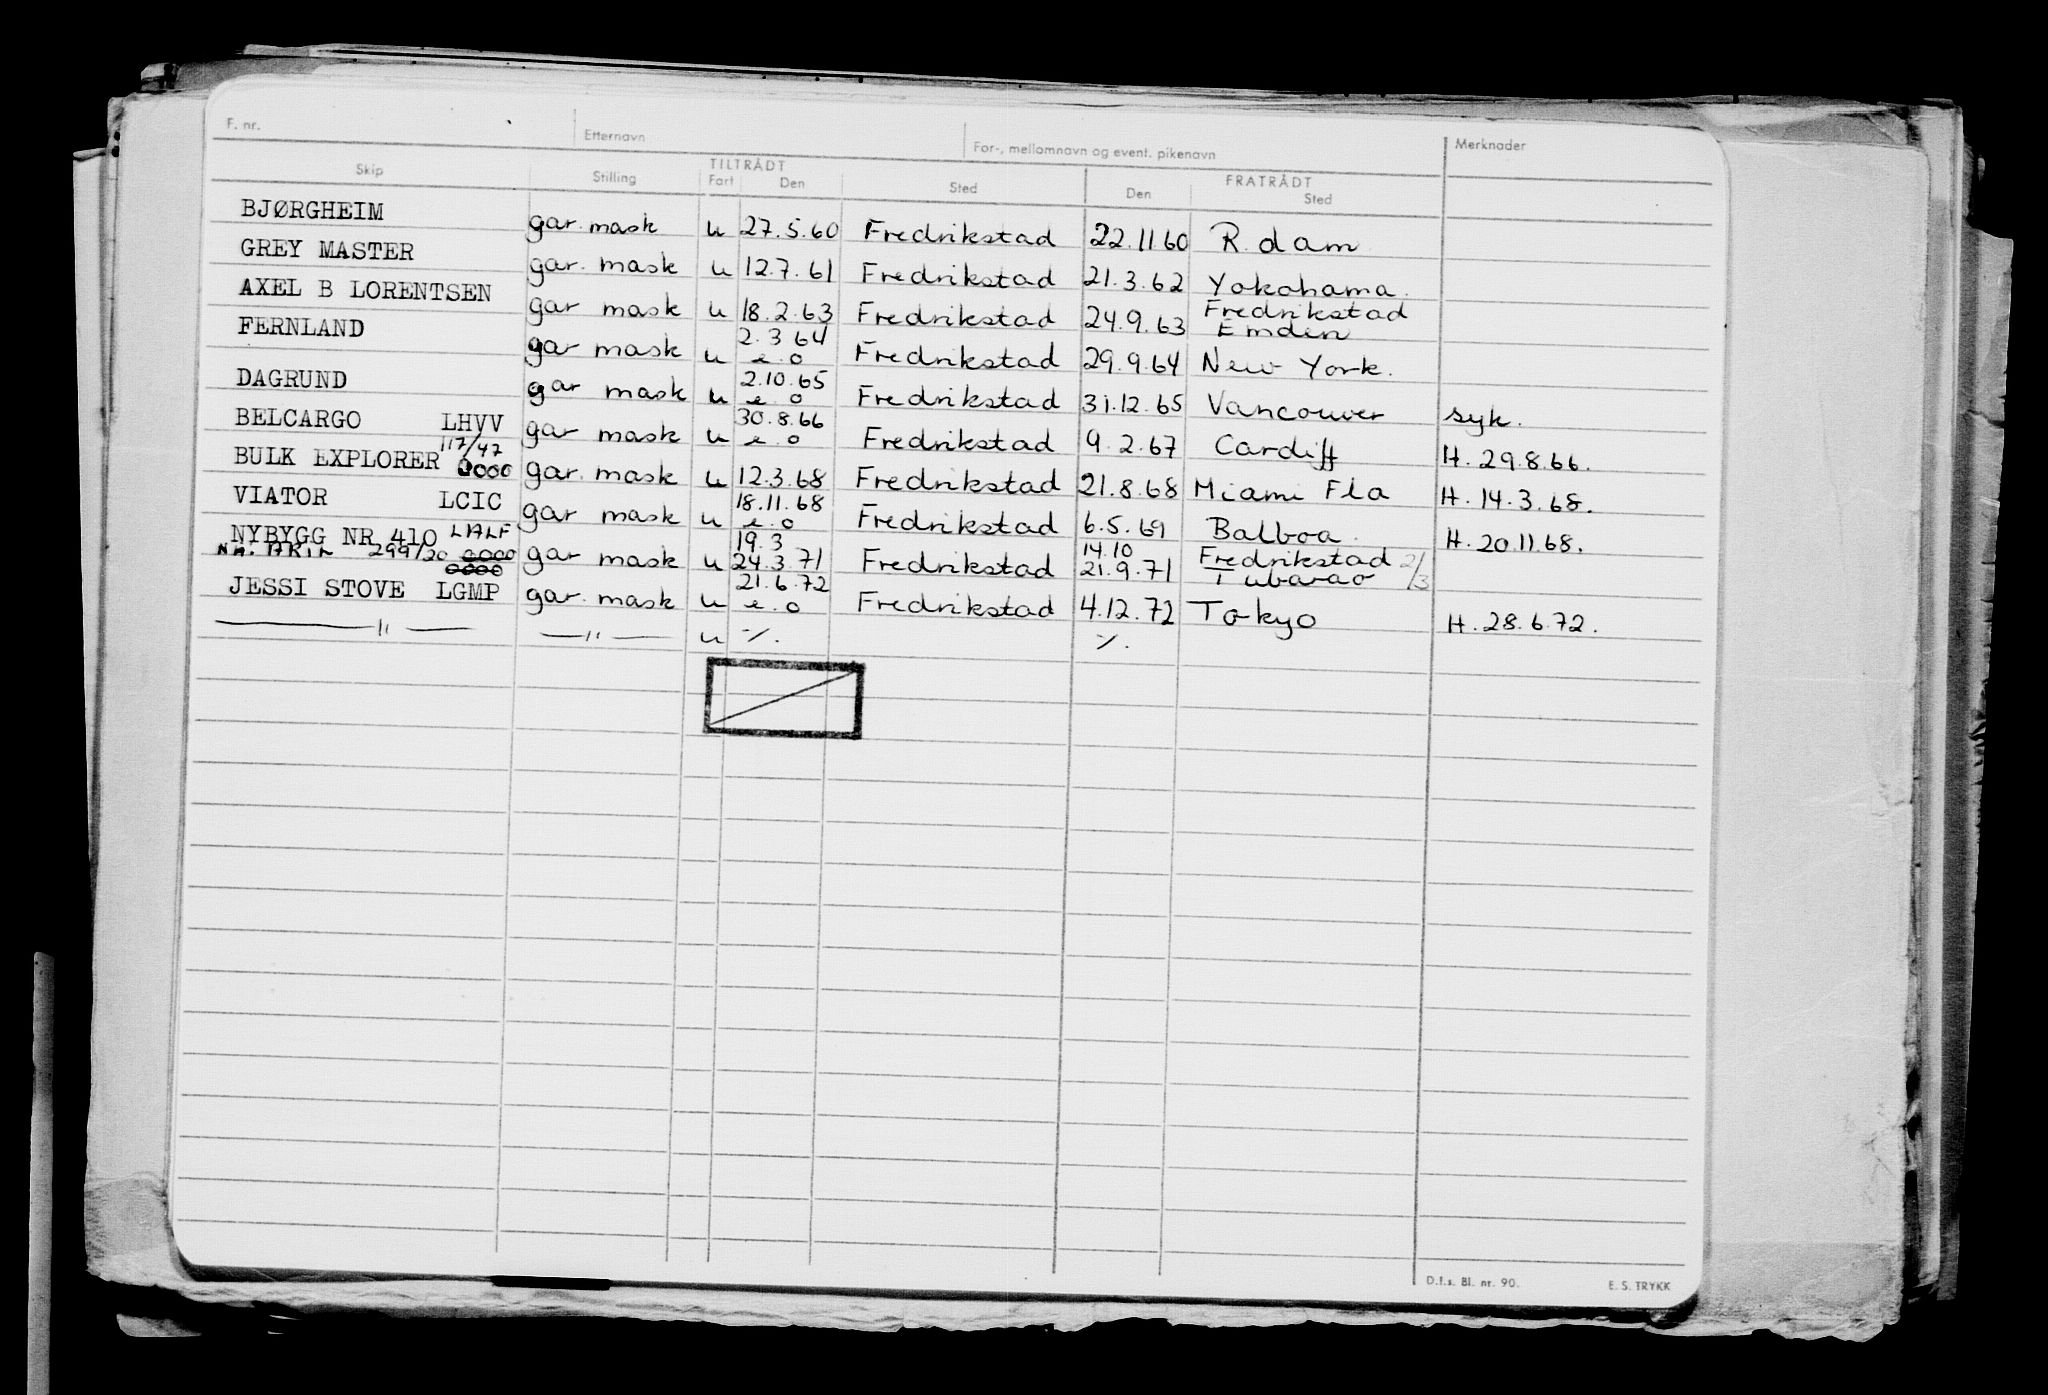 F. nr. Etternavn For-, mellomnavn og event. pikenavn Merknader
Skip Stilling TILTRÅDT Fart Den Sted FRATRÅDT Den Sted
BJØRGHEIM gar. mask u 27.5.60 Fredrikstad 22.11.60 R.dam
GREY MASTER gar. mask u 12.7.61 Fredrikstad 21.3.62 Yokohama.
AXEL B LORENTSEN gar mask u 18.2.63 Fredrikstad 24.9.63 Fredrikstad Emden
FERNLAND gar mask u 2.3.64 e.o Fredrikstad 29.9.64 New York.
DAGRUND gar mask u 2.10.65 e.o Fredrikstad 31.12.65 Vancouver syk.
BELCARGO LHVV gar mask u 30.8.66 e.o Fredrikstad 9.2.67 Cardiff H. 29.8.66.
BULK EXPLORER 117/47 0000 gar. mask u 12.3.68 Fredrikstad 21.8.68 Miami Fla H. 14.3.68.
VIATOR LCIC gar mask u 18.11.68 e.o Fredrikstad 6.5.69 Balboa. H. 20.11.68.
NYBYGG NR 410 19.3 14.10 Fredrikstad 2/3
299/20 0000 gar mask u 24.3.71 Fredrikstad 21.9.71 Tubarao
0000
JESSI STOVE LGMP gar. mask u 21.6.72 e.o Fredrikstad 4.12.72 Tokyo H. 28.6.72.
—"— —"— u -/. -/.
D.f.s. Bl. nr. 90. E. S. TRYKK